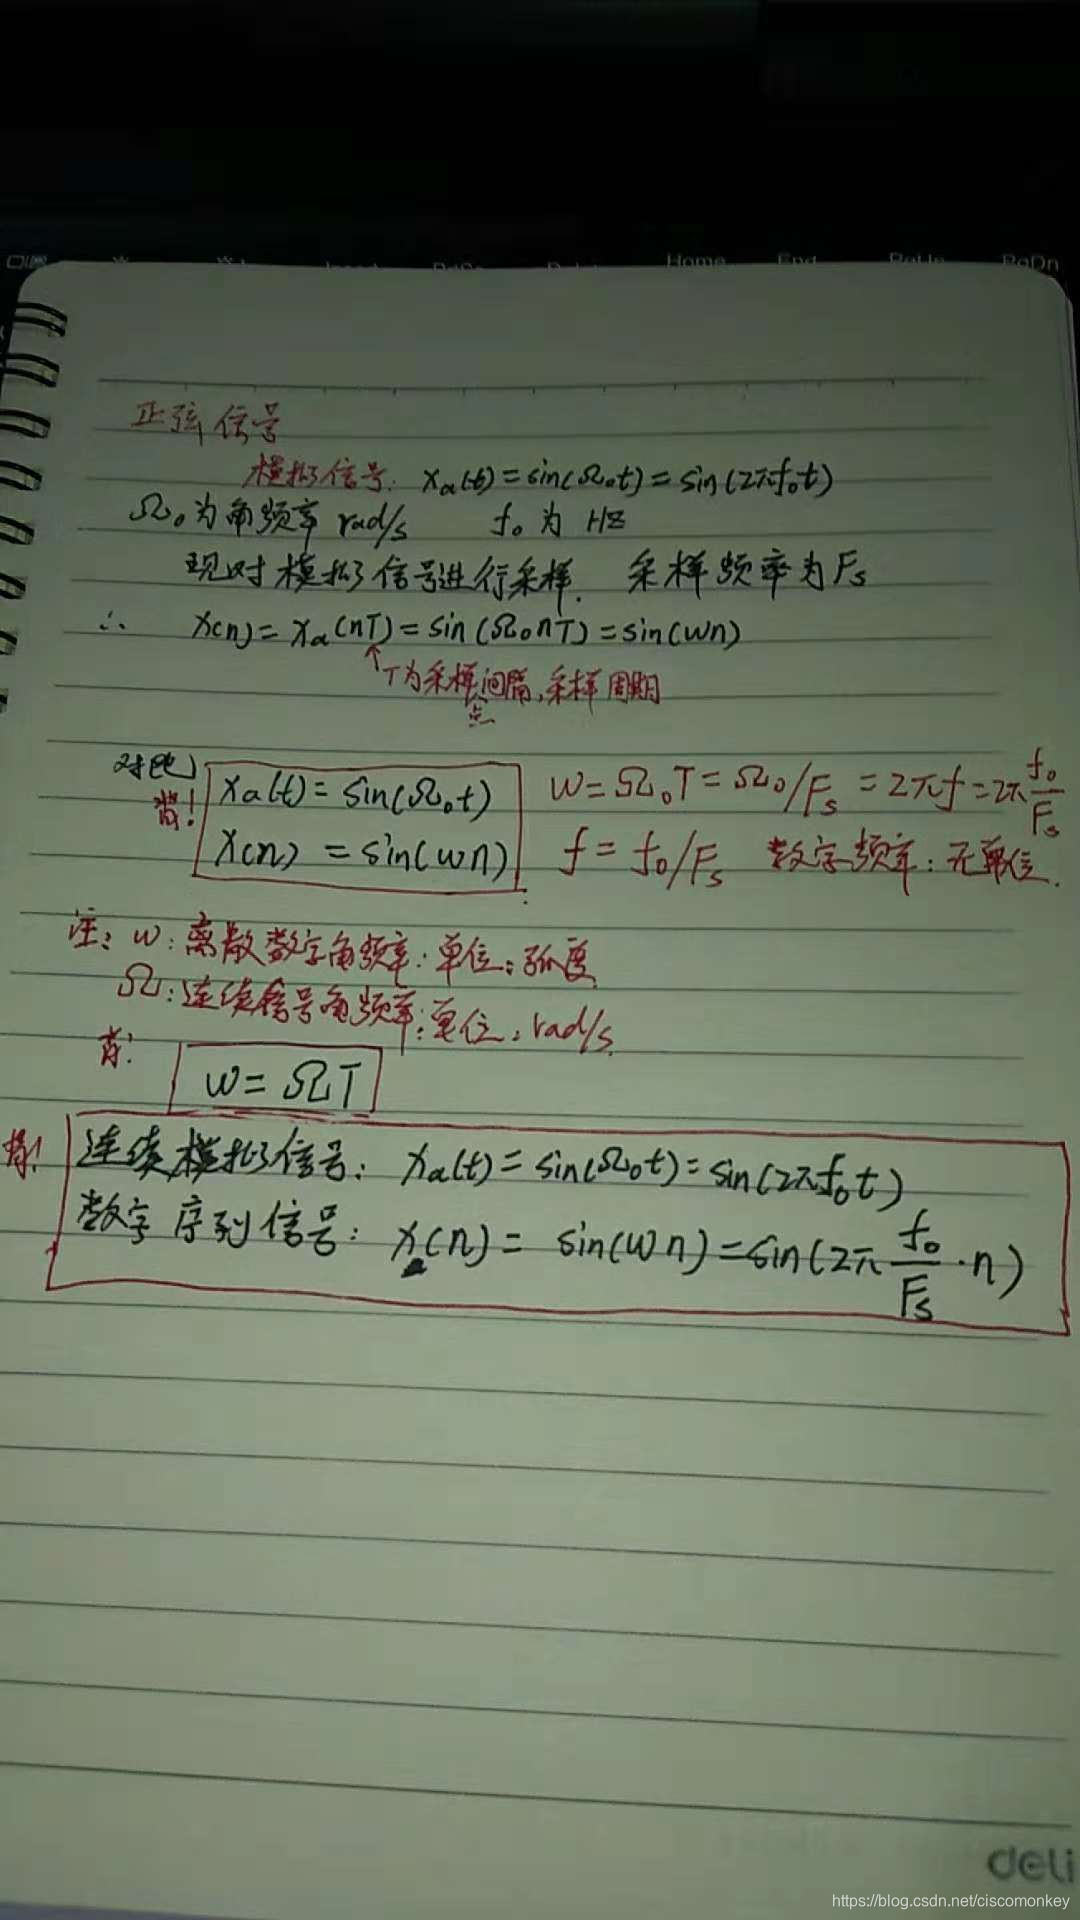 Home End PgUp PgDn
正弦信号
模拟信号: xₐ(t)=sin(Ω₀t)=sin(2πf₀t)
Ω₀为角频率 rad/s f₀为 HZ
现对模拟信号进行采样. 采样频率为Fs
∴ x(n)=xₐ(nT)=sin(Ω₀nT)=sin(wn)
↑T为采样间隔,采样周期
点
对比
背! xₐ(t)=sin(Ω₀t) w=Ω₀T=Ω₀/Fs=2πf=2πf₀/Fs
x(n)=sin(wn) f=f₀/Fs 数字频率:无单位.
注: w:离散数字角频率:单位:弧度
Ω:连续信号角频率:单位:rad/s.
背! w=ΩT
背! 连续模拟信号: xₐ(t)=sin(Ω₀t)=sin(2πf₀t)
数字序列信号: x(n)=sin(wn)=sin(2πf₀/Fs·n)
deli
https://blog.csdn.net/ciscomonkey